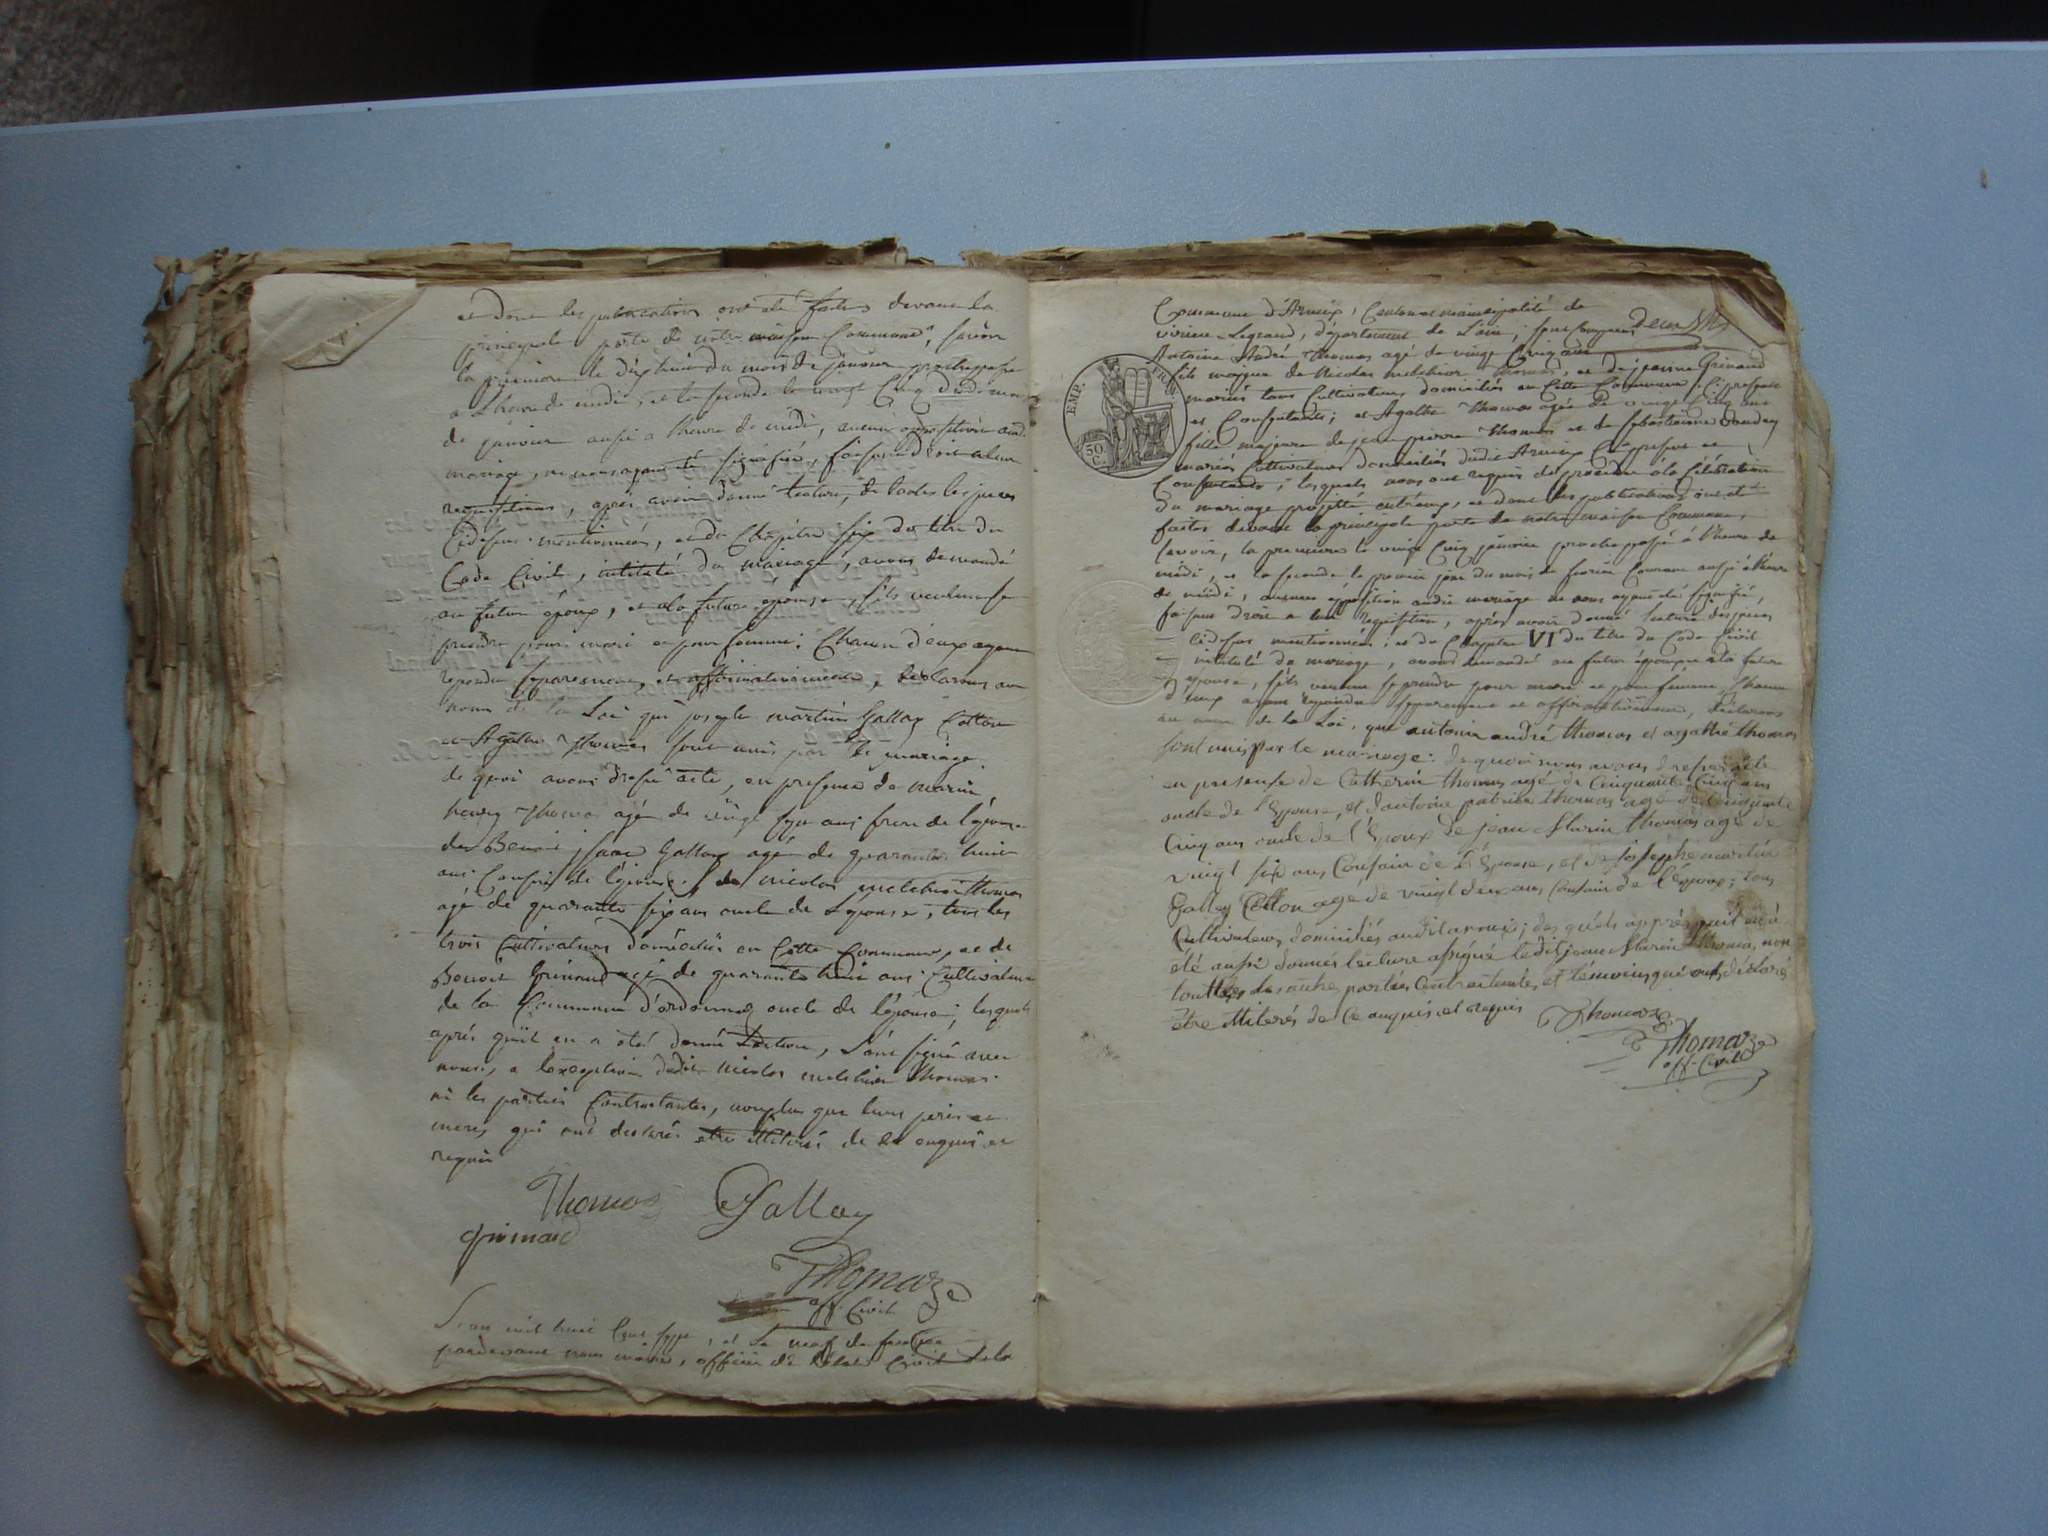 et dont les publications ont été faites devant la
principale porte de nôtre maison Commune, savoir
la première le dix huit du mois de janvier proche passé
a l'heure de midi, et la seconde le vingt Cinq dud. mois
de janvier aussi a l'heure de midi, aucune opposition aud.
mariage, ne nous ayant été signifiée, faisant droit a leur
requisitions, après avoir donné lecture, de toutes les pieces
Cidessus mentionnées, et du Chapitre six du titre du
Code Civil, intitulé du mariage, avons demandé
au futur époux, et a la future épouse, s'ils veulent se
prendre pour mari et pour femme; Chacun d'eux ayant
repondu separement, et affirmativement, declarons au
nom de la Loi que joseph martin Gallay Collon
et Agathe Thomas sont unis par le mariage.
de quoi avons dressé acte, en presence de marin
henry Thomas agé de vingt sept ans frere de l'épouse
de Benoit isaac Gallay agé de quarante huit
ans Cousin de l'époux, de nicolas melchior Thomas
agé de quarante six ans oncle de L'épouse, tous les
trois Cultivateurs domiciliés en Cette Commune, et de
Benoit Grinand agé de quarante huit ans Cultivateur
de la Commune d'ordonnaz oncle de l'épouse; lesquels
après qu'il en a été donné Lecture, L'ont signé avec
nous, a l'exception dudit nicolas melchior Thomas
ni les parties Contractantes, nonplus que leurs peres et
meres qui ont declarés etre illiterés de ce enquis et
requis
Thomas Gallay
Grinand
Thomas
off. Civil
L'an mil huit Cent sept, et Le neuf de fevrier
pardevant nous maire, officier de l'état Civil de la
Commune d'Armix, Canton et municipalité de
virieu Legrand, département de L'ain, sont Comparus
Antoine André Thomas agé de vingt Cinq ans
fils majeur de Nicolas melchior Thomas, et de jeanne Grinand
mariés tous Cultivateurs domiciliés en Cette Commune Ciprésents
EMP. FRAN.
50. C.
et Consentants; et Agathe Thomas agée de vingt Cinq ans
fille majeure de jean pierre Thomas et de Sebastienne
mariés Cultivateurs domiciliés dudit Armix Ciprésents et
Consentants; lesquels nous ont requis de proceder a la Célébration
du mariage projetté entr'eux, et dont les publications ont été
faites devant la principale porte de notre maison Commune,
savoir, la premiere le vingt Cinq janvier proche passé à l'heure de
midi, et la seconde le premier jour du mois de fevrier Courant aussi à l'heure
de midi, aucune opposition audit mariage ne nous ayant été signifiée,
faisant droit a leur requisition, après avoir donné lecture des pieces
Cidessus mentionnées, et du Chapitre VI du titre du Code Civil
intitulé du mariage, avons demandé au futur époux et a la future
epouse, s'ils veulent se prendre pour mari et pour femme, Chacun
d'eux ayant repondu separement et affirmativement, déclarons
au nom de la Loi, que antoine andré thomas et agathe thomas
sont unis par le mariage: de quoi nous avons dressé acte
en presense de Catherin thomas agé de Cinquante Cinq ans
oncle de l'Epouse, et d'antoine patrice thomas agé de Cinquante
Cinq ans oncle de l'Epoux de jean Marin thomas agé de
vingt six ans Coussin de l'Epouse, et de joseph martin
Galley Collon age de vingt deux ans Coussin de l'epoux; tous
Cultivateurs domiciliés audit armix; des quels apprés quil en a
eté aussi donnés lecture assigné le dit jean Marin thomas non
touttes les autres parties Contractantes et témoins qui ont déclaré
être illiterés de Ce anquis et requis
Thomas
Thomas
off. Civil